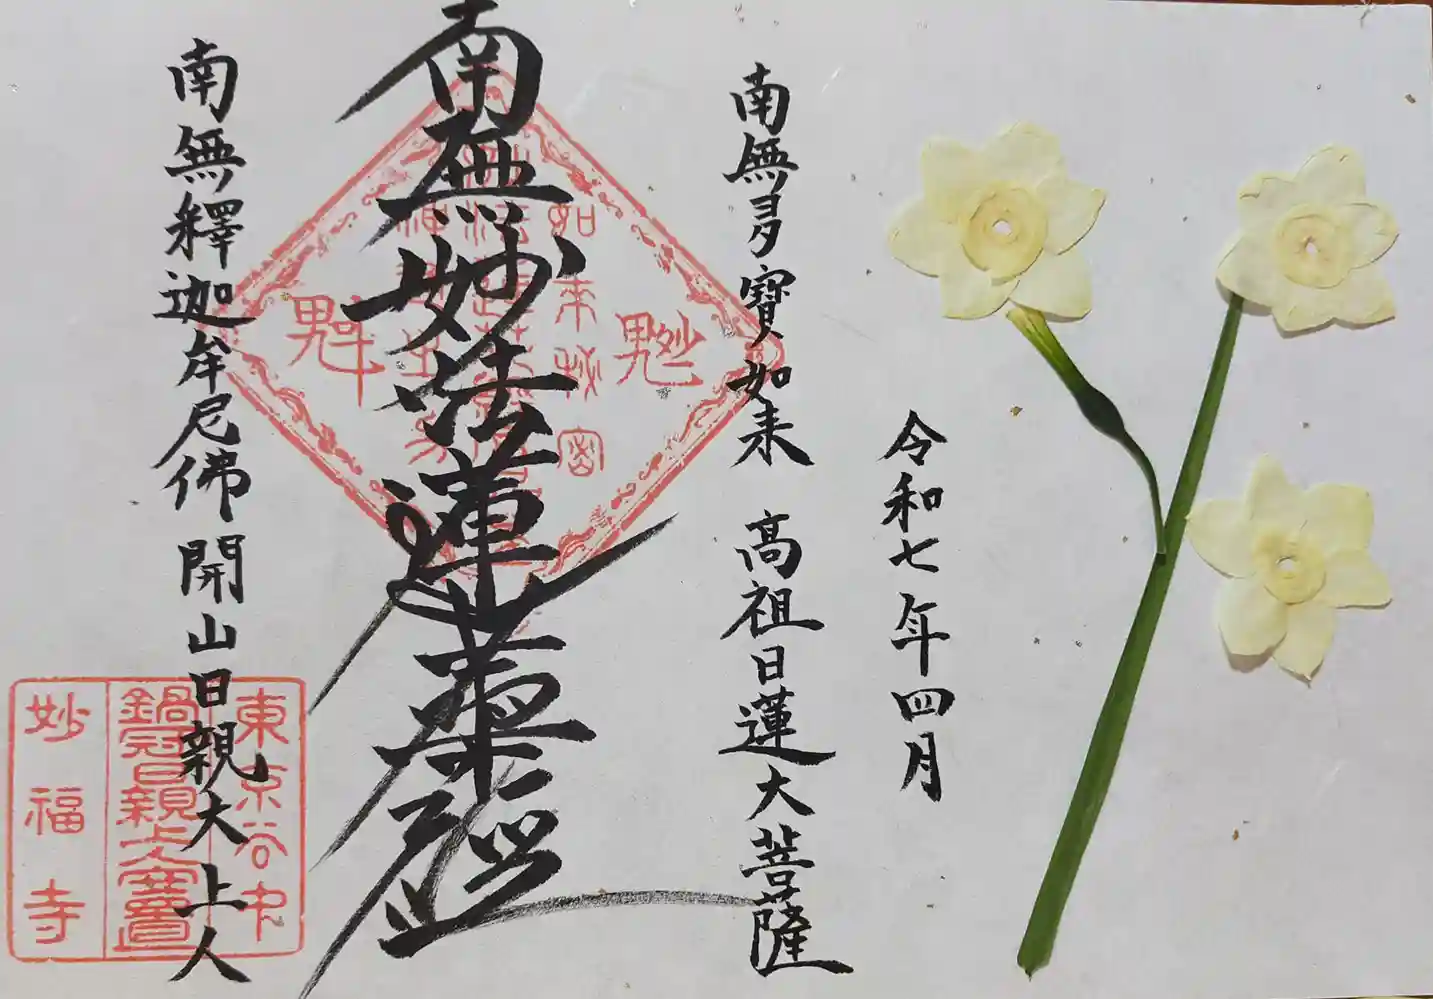 令和七年四月
南無多寶如来 高祖日蓮大菩薩
南無妙法蓮華經
南無釋迦牟尼佛 開山日親大上人
如来秘密
東京谷中
鍋冠日親上人安置
妙福寺